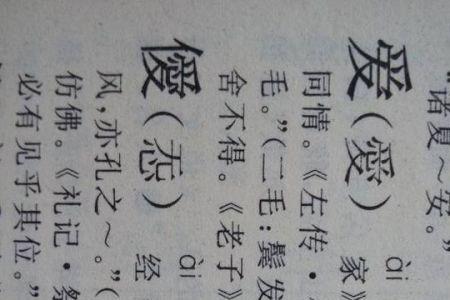 “诸夏～安。”
爱(愛) ài 家》
同情。《左传·
毛。”(二毛:鬓发
舍不得。《老子》
僾(㤅) ài 经
风,亦孔之～。”(
仿佛。《礼记·祭
必有见乎其位。”